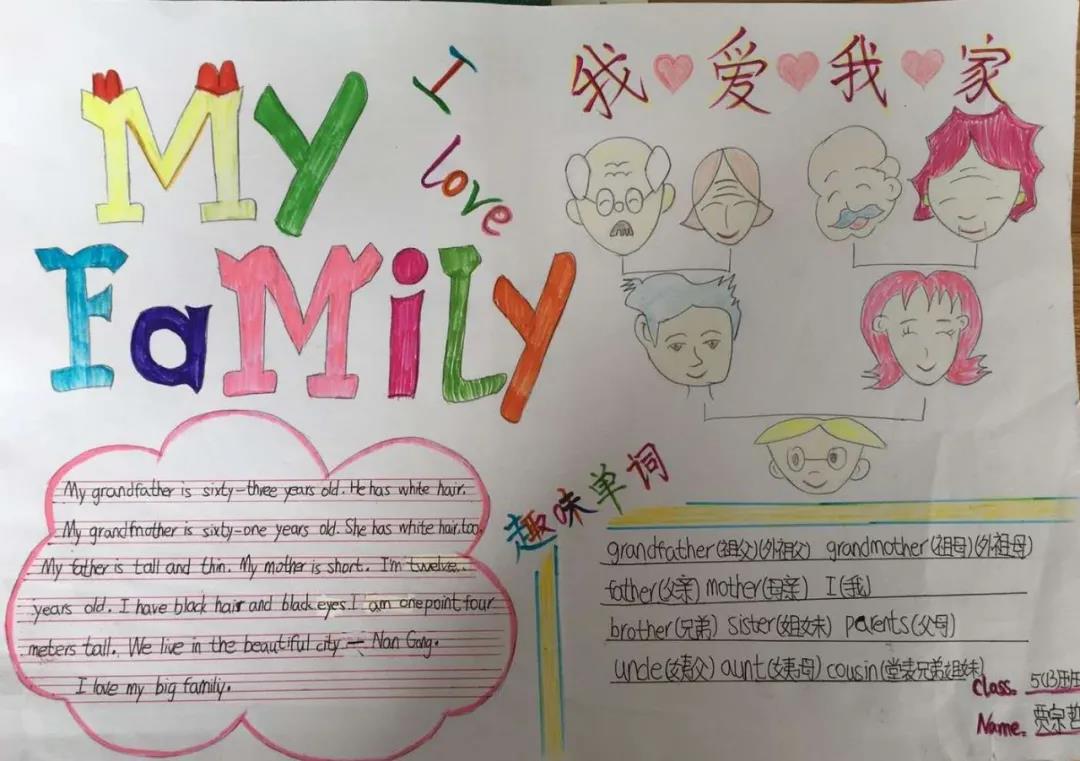 My
I love
FaMiLy
我爱我家
My grandfather is sixty-three years old. He has white hair.
My grandfmother is sixty-one years old. She has white hair, too.
My father is tall and thin. My mother is short. I'm twelve..
years old. I have black hair and black eyes. I am one point four
meters tall. We live in the beautiful city — Nan Gang.
I love my big family.
趣味单词
grandfather(祖父)(外祖父) grandmother(祖母)(外祖母)
father(父亲) mother(母亲) I(我)
brother(兄弟) sister(姐妹) parents(父母)
uncle(姨父) aunt(姨母) cousin(堂表兄弟姐妹)
Class.
Name. 贾宗哲